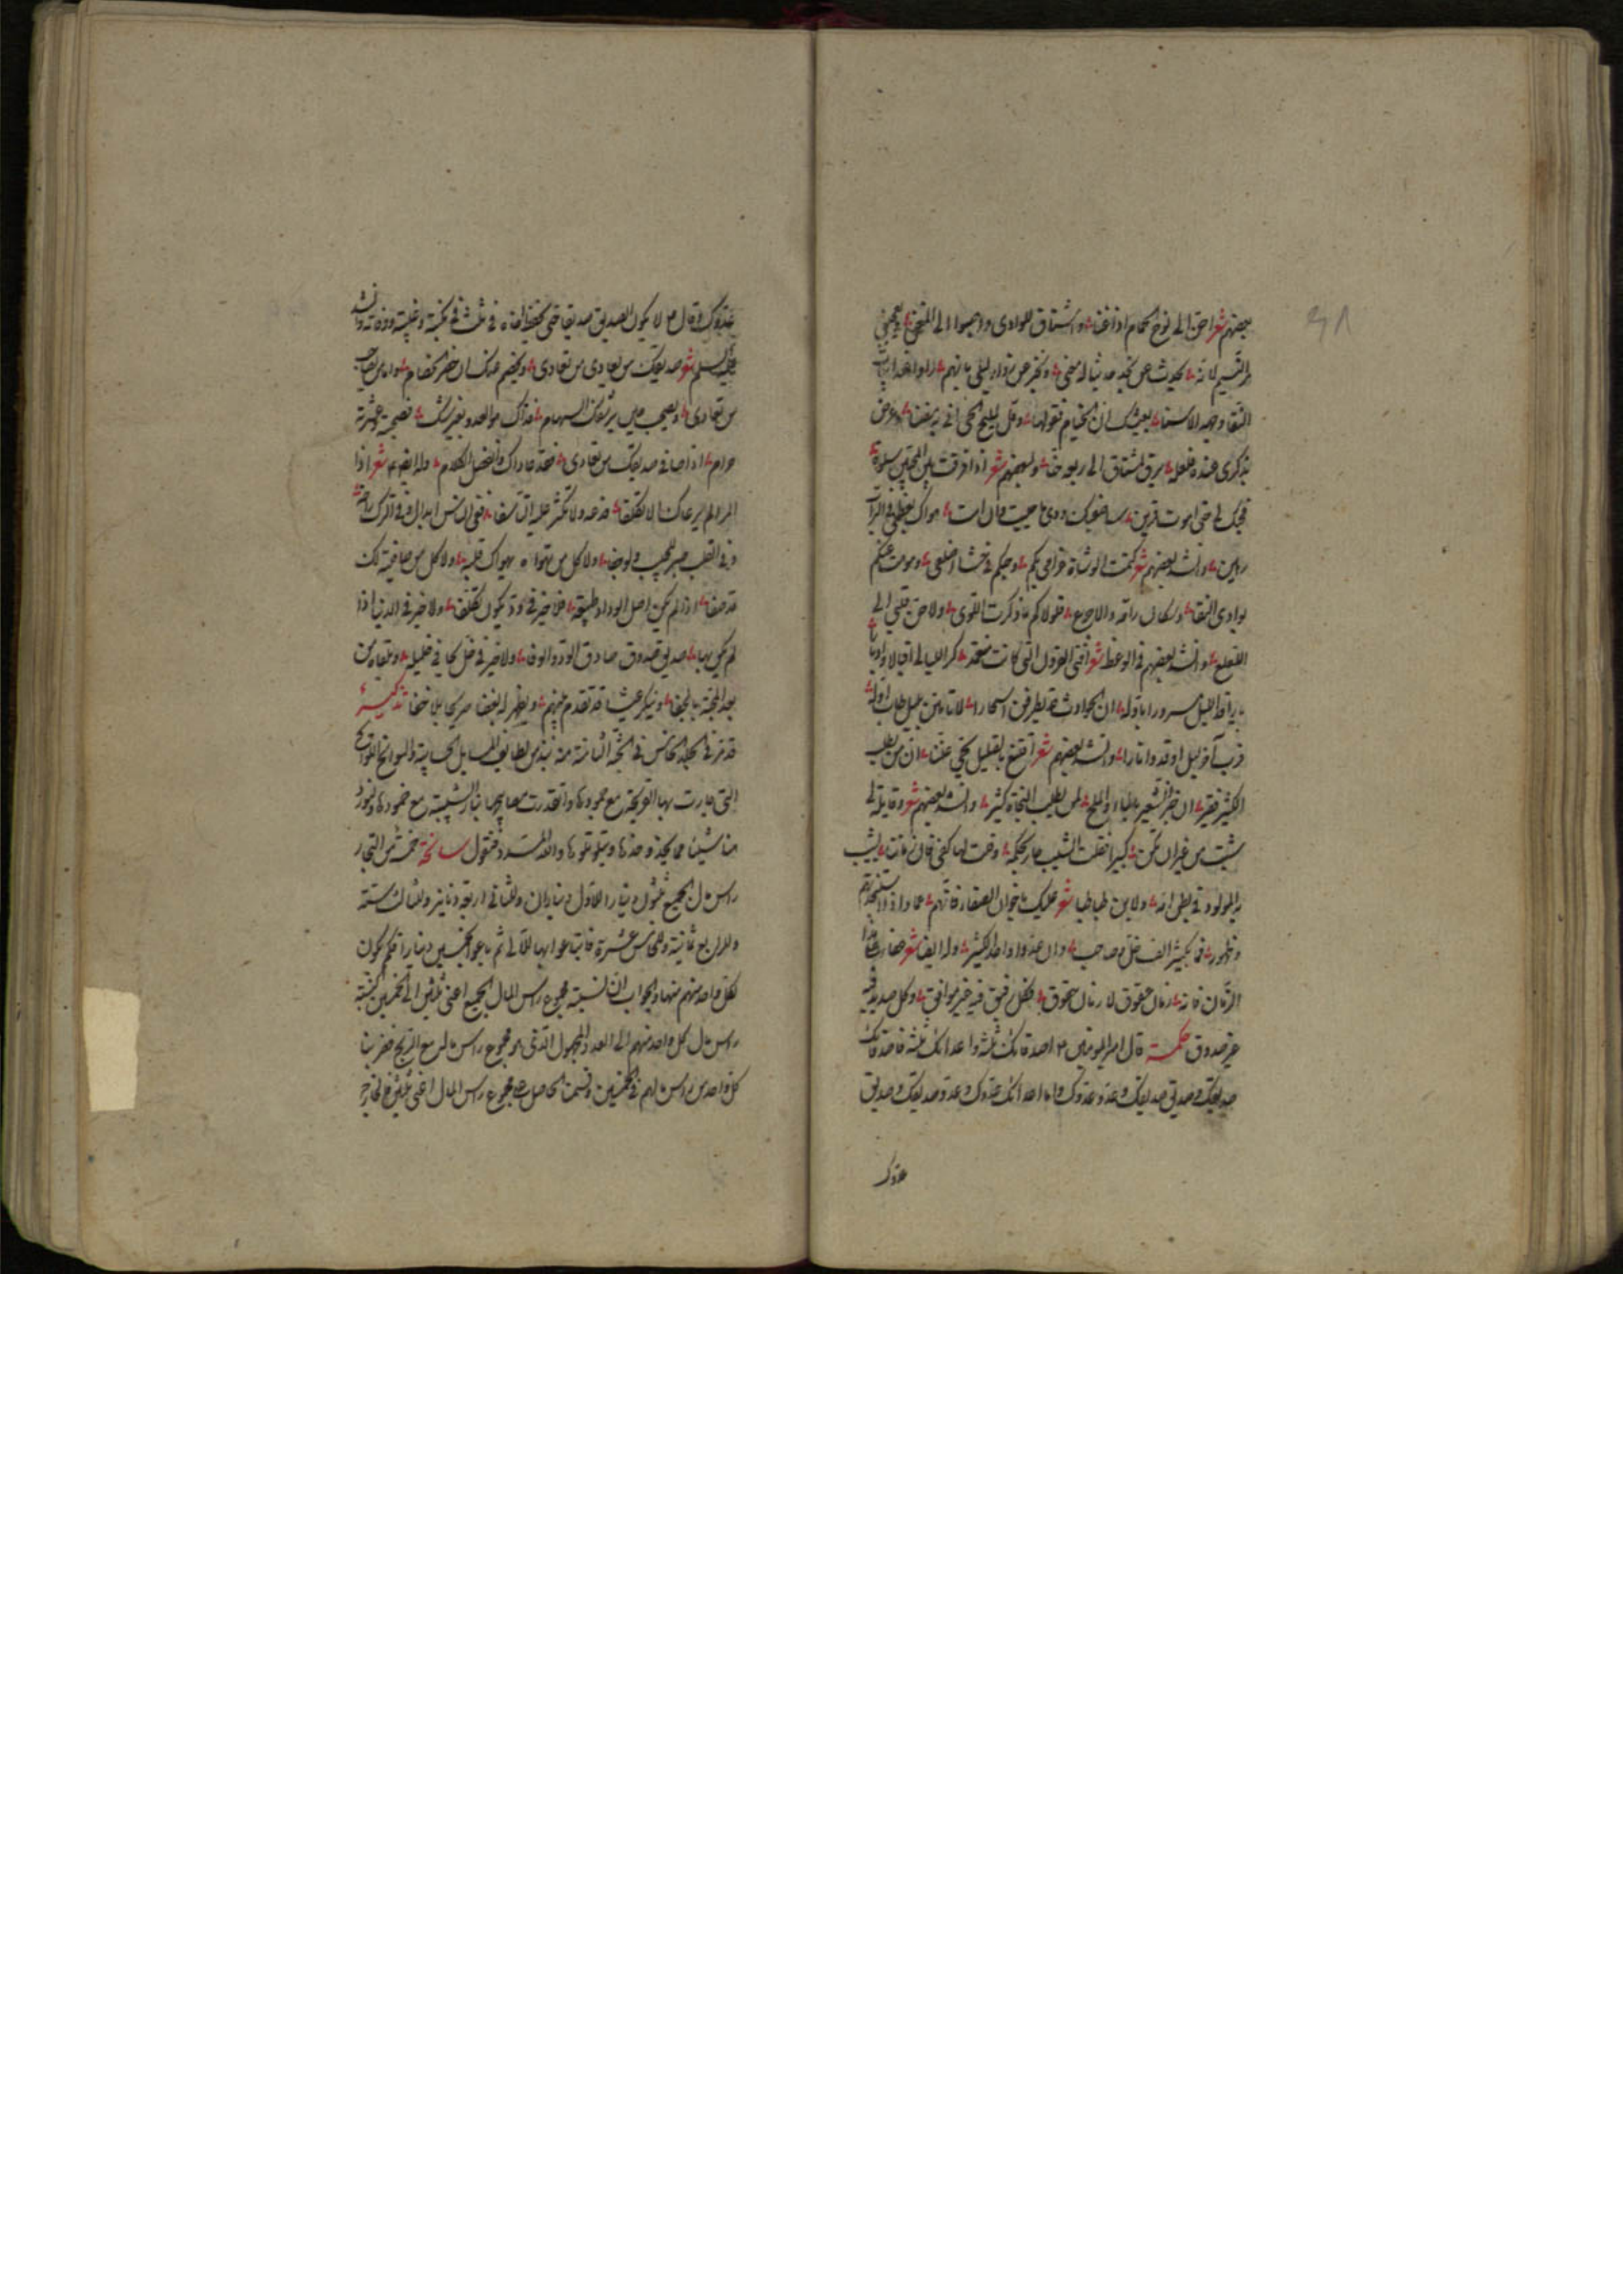 بعضهم شعر احن الى نوح الحمام اذا غنا واشتاق للوادى واصبوا الى المنحنى ويعجبنى
مر النسيم لانه يحدث عن نجد حديثا له معنى ويخبر عن
النقا وجهه الاسنا بعيشك ان الخيام فقولها وقل لمليح الحى انى به مضنا وعرض
بذكرى عنده فلعله يرق لمشتاق الى ربعه حنا ولبعضهم شعر اذا افرقت بين المحبين سلوة
فحبك لى حتى اموت قرين سأصفيك ودى ما حييت فان امت هواك لعظمى فى التراب
رهين وانشد بعضهم شعر كتمت الوشاة غرامى بكم وحبكم فى حشا اضلعى وموت عنكم
بوادى النقا وسكان رامه والاجرع فلولاكم ما ذكرت اللوى ولا حن قلبى الى
لعلع وانشد بعضهم فى الوعظ شعر افنى القرون التى كانت منعمة كر الليالى اقبالا وادبارا
يا راقد الليل مسرورا باوله ان الحوادث قد يطرقن اسحارا لا تامنن بليل طاب اوله
فرب آخر ليل اوقد النارا وانشد بعضهم شعر اقنع بالقليل تحى غنيا ان من يطلب
الكثير فقير ان خبز الشعير بالماء والملح لمن يطلب النجاة كثير وانشد بعضهم شعر وقايلة لى
شبت من غير ان تكن كبيرا فقلت الشيب جار بحكمه وقلت لها كفى فان زماننا يشيب
به المولود فى بطن امه ولابن طباطبا شعر عليك باخوان الصفا فانهم عماد اذا استنجدتهم
وظهور فما بكثير الف خل وصاحب وان عدوا واحدا لكثير وله ايضا شعر
الزمان فانه زمان عقوق لا زمان حقوق فكل رفيق فيه غير موافق وكل صديق فيه
غير صدوق حكمة قال امير المؤمنين ع اصدقائك ثلثة واعدائك ثلثة فاصدقائك
صديقك وصديق صديقك وعدو عدوك واما اعدائك عدوك وعدو صديقك وصديق
عدوك
عدوك وقال ع لا يكون الصديق صديقا حتى يحفظ اخاه فى ثلث فى نكبته وغيبته ووفاته وانشد
عليه السلم شعر صديقك من يعادى من تعادى
من تعادى ويصحب حين يرشقك السهام فذاك هو العدو بغير شك فصحبته وعشرته
حرام اذا صافى صديقك من تعادى فقد عاداك وانفصل الكلام وله ايضا ع شعر اذا
المرء لم يرعاك الا تكلفا فدعه ولا تكثر عليه التاسفا ففى الناس ابدال وفى الترك راحة
وفى القلب صبر للحبيب ولو جفا ولا كل من تهواه يهواك قلبه ولا كل من صافيته لك
قد صفا اذا لم يكن اصل الوداد طبيعة فلا خير فى ود يكون تكلفا ولا خير فى الدنيا اذا
لم يكن بها صديق صدوق صادق الود والوفا ولا خير فى خل يجافى خليله ويلقاه من
بعد المحبة بالجفا وينكر عيشا قد تقدم بينهم ويظهر له البغضا صريحا بلا خفا تذكرة
قد مر فى المجلد الخامس فى النجمة الثامنة منه نبذ من لطايف المسايل الحسابية والسوانح
التى جارت بها القريحة مع جمودها واتقدت مصابيحها بنار الشبيبة مع خمودها ولنورد
هنا شيئا مما يحذو حذوها ويتلو تلوها والله المسدد فنقول سانحة خمسة من التجار
راس مال الجميع ثلثون دينارا للاول ديناران وللثانى اربعة دنانير وللثالث ستة
وللرابع ثمانية وللخامس عشرة فابتاعوا بها لآلى ثم باعوا بخمسين دينارا فكم يكون
لكل واحد منهم منها والجواب ان نسبة مجموع راس المال الجميع اعنى ثلثين الى الخمسين كنسبة
راس مال كل واحد منهم الى العدد المجهول الذى هو مجموع راس ماله مع الربح فضربنا
كل واحد من راس مالهم فى الخمسين وقسمت الحاصل على مجموع راس المال اعنى ثلثين فخرج